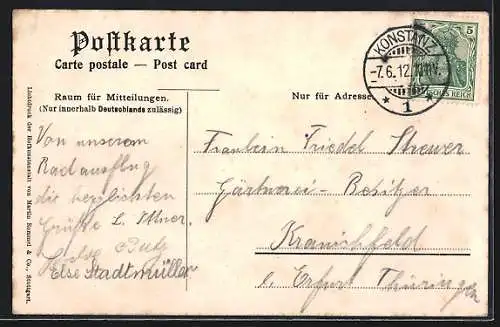 Postkarte
Carte postale — Post card
Raum für Mitteilungen.
(Nur innerhalb Deutschlands zulässig)
Nur für Adresse
KONSTANZ
-7.6.12.
* 1 *
5
DEUTSCHES REICH
Von unserem
Radausflug
die herzlichsten
Grüße L. Ittner.
Else Stadtmüller
Fräulein Friedel
Gärtnerei-Besitzer
Kranichfeld
b. Erfurt Thüringen
Lichtdruck der Hofkunstanstalt von Martin Rommel & Co., Stuttgart.